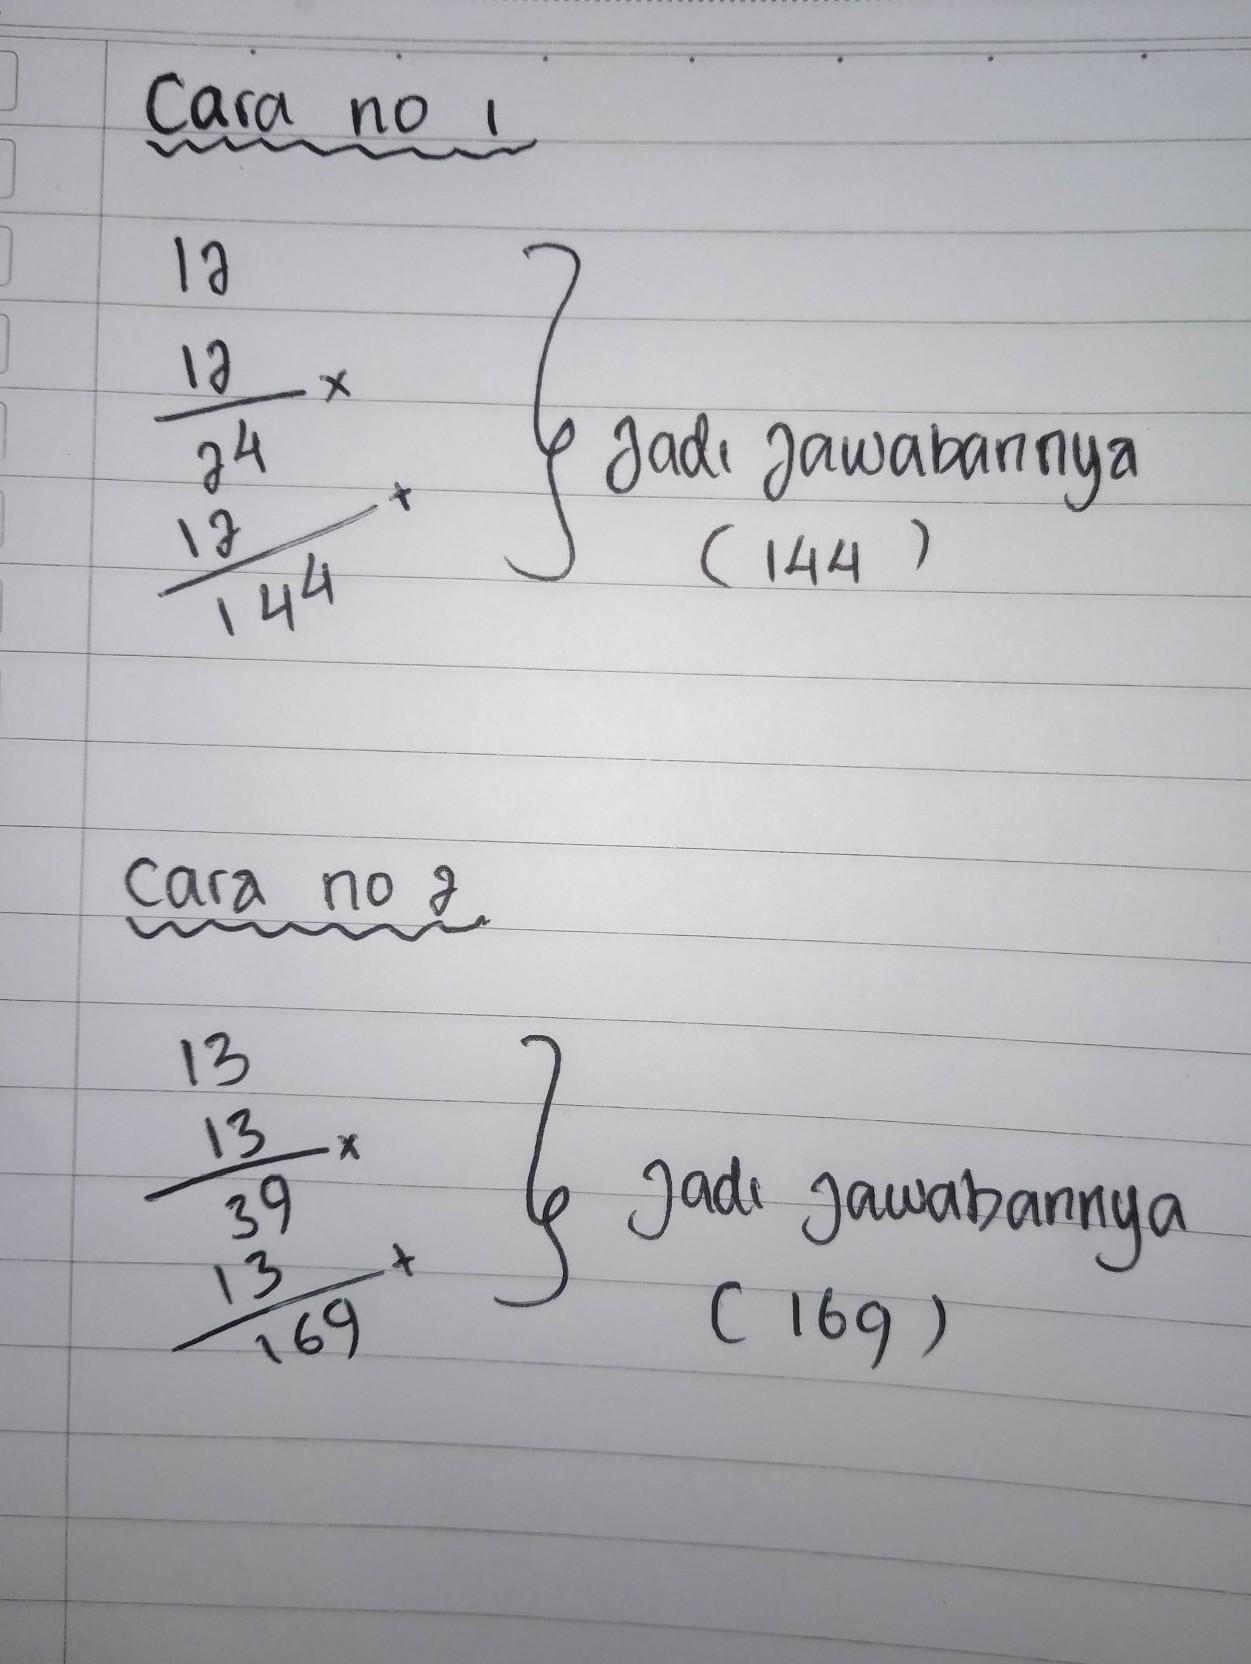 Cara no 1
12
12 x
24
12 +
144
Jadi Jawabannya
(144)
Cara no 2
13
13 x
39
13 +
169
Jadi Jawabannya
(169)